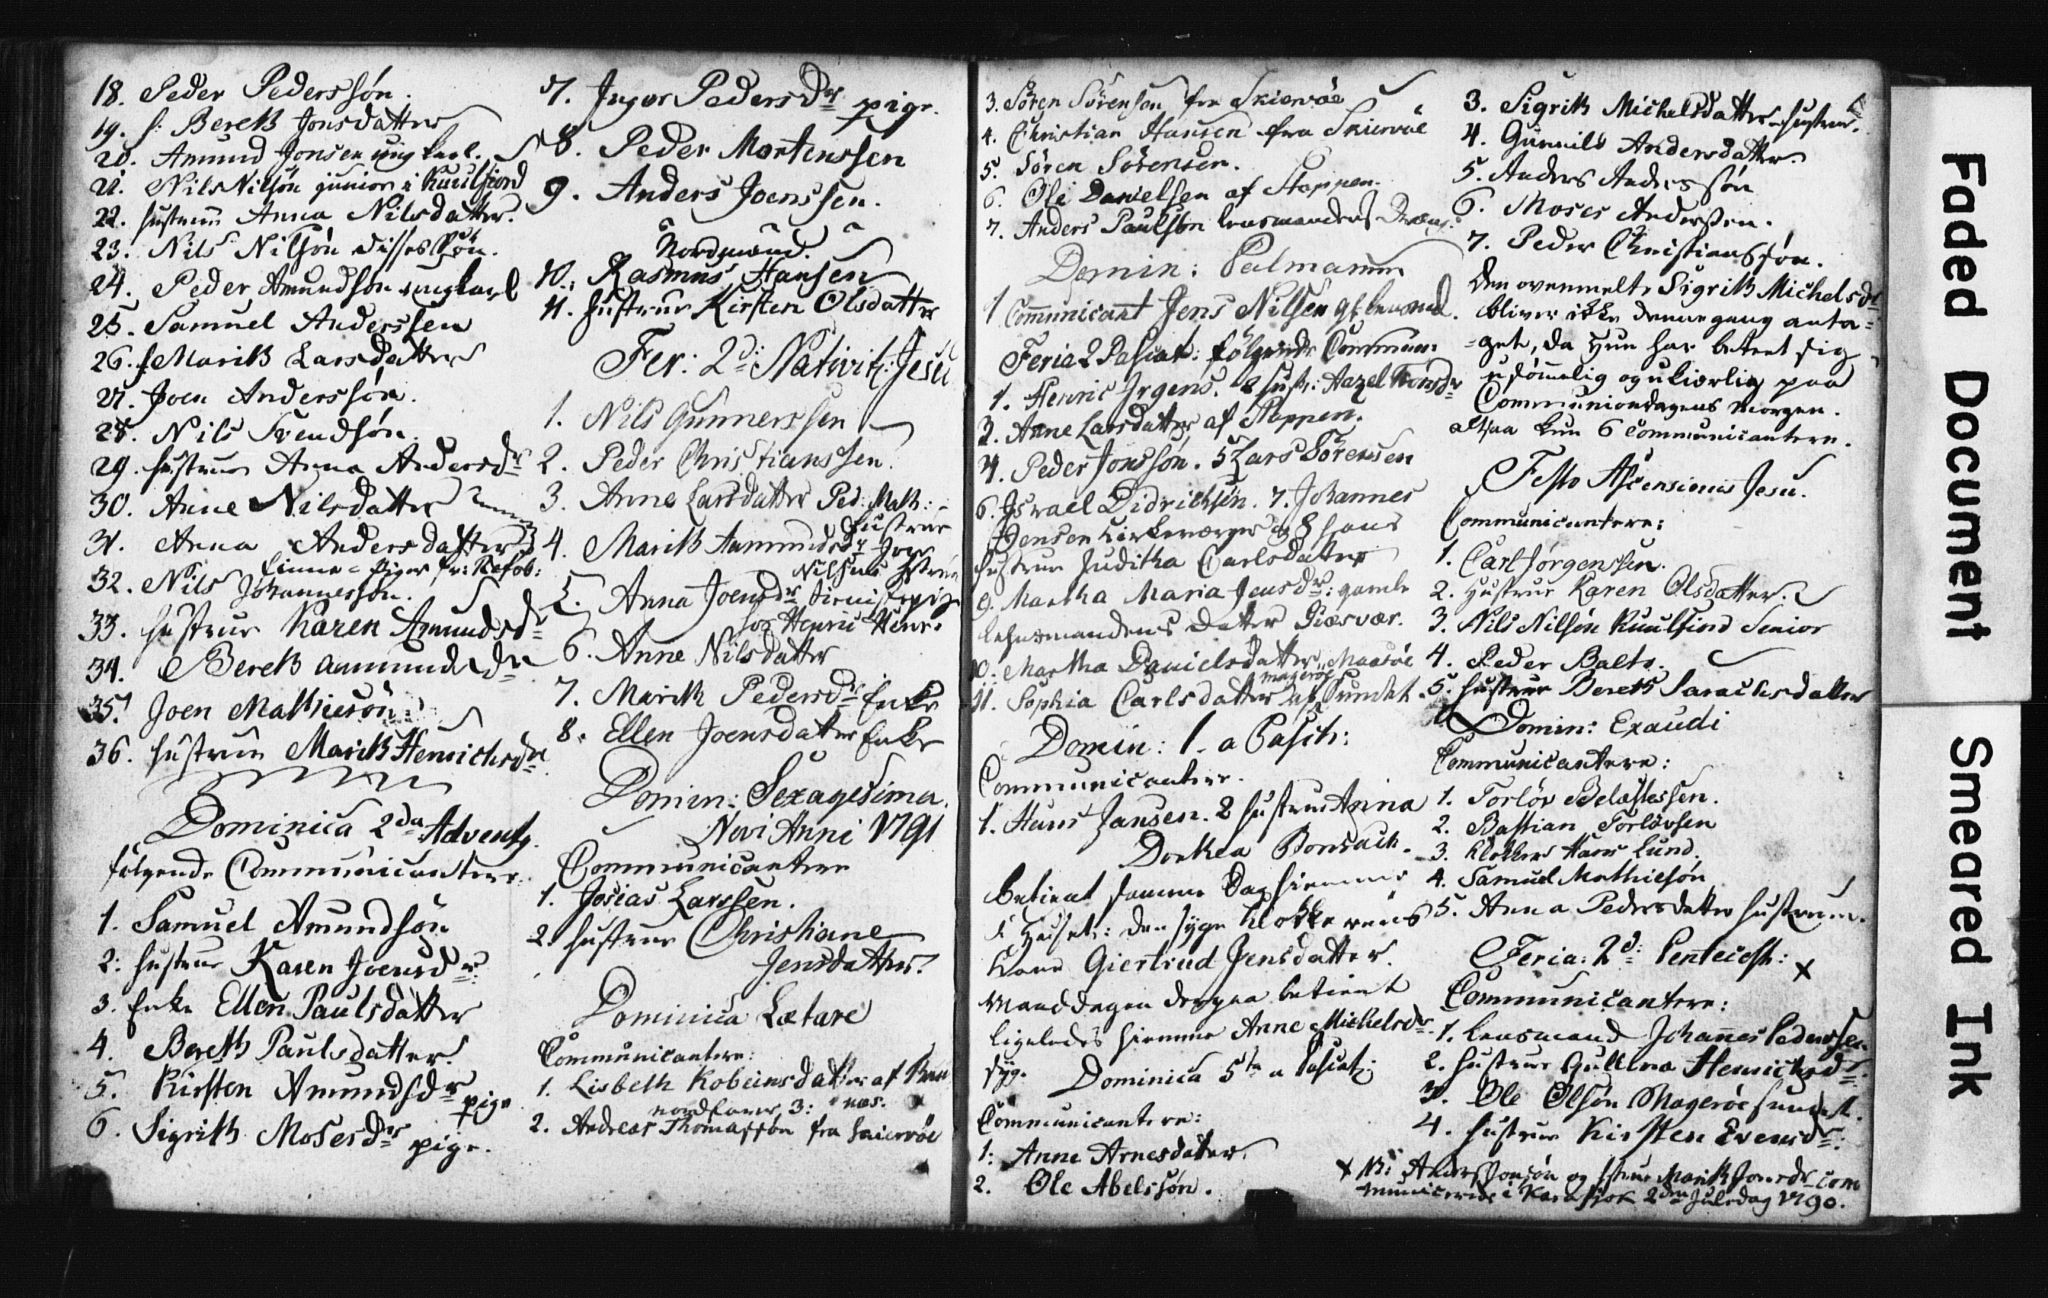 18. Peder Pederssøn.
19. h: Bereth Jonsdatter
20. Amund Jonsen ung karl.
21. Nils Nilsøn junior i Kuulfiord
22. hustrue Anna Nilsdatter.
23. Nils Nilsøn
24. Peder Amundsøn ungkarl
25. Samuel Anderssen
26. Marith Larsdatter
27. Joen Anderssøn.
28. Nils Svendsøn
29. hustrue Anna Andersdr
30. Anne Nilsdatter
31. Anna Andersdatter
32. Nils Johannessøn.
33. hustrue Karen Amundsdr
34. Bereth Aamundsdr
35. Joen Mathiesøn
36. hustrue Marith Henrichsdr
Dominica 2da Advent,
følgende Communicantere
1. Samuel Amundsøn
2. hustrue Karen Joensdr
3. Enke Ellen Paulsdatter
4. Bereth Paulsdatter
5. Kirsten Amundsdr pige
6. Sigrith Mosesdr pige.
7. Inger Pedersdr pige.
8. Peder Mortenssen
9. Anders Joenssen.
Nordmænd.
10. Rasmus Hansen
11. hustrue Kirsten Olsdatter
Fer: 2d: Nativit: Jesu
1. Nils Gunnerssen
2. Peder Christianssen.
3. Anne Larsdatter Ped: Math:
hustrue
4. Marith Aamundsdr Joen
Nilsens
5. Anna Joensdr tienistepige
hos Henric Henr:
6. Anne Nilsdatter
7. Marith Pedersdr Enke
8. Ellen Joensdatter Enke
Domin: Sexagesima.
Novi Anni 1791
Communicantere
1. Josias Larssen.
2. hustrue Christiane
Jensdatter.
Dominica Lætare
Communicantere:
1. Lisbeth Kobeinsdatter af
nordfarer 3:
2. Andreas Thomassøn fra Skiervøe
3. Søren Sørensøn fra Skiervøe
4. Christian Hansen fra Skiervøe
5. Søren Sørensen.
6. Ole Danielsen af Stappen.
7. Anders Paulsøn lensmandens
Domin: Palmarum
1 Communicant Jens Nilsen
Feria 2 Pasiat: følgende Commun:
1. Henric Irgens. 2 hust:
3. Anne Larsdatter af Stappen.
4. Peder Jonssøn. 5 Lars Sørensen
6. Israel Didrichsøn. 7. Johannes
Jensen Kirkeværger og 8 hans
hustrue Juditha Carlsdatter
9. Martha Maria Jensdr: gamle
lensmandens datter Giæsvær.
10. Martha Danielsdatter Maasøe
magerøe
11. Sophia Carlsdatter af sundet.
Domin: 1. a Pasch:
Communicantere.
1. Hans Jansen. 2 hustrue Anna
Dorthea Bonsach.
betient samme Dag hiemme
i Huset: den syge Klokkerens
Kone Giertrud Jensdatter.
Manddagen derpaa betient
ligeledes hiemme Anne Michelsdr
syg. Dominica 5ta a Pasiat:
Communicantere:
1. Anne Arnesdatter.
2. Ole Abelssøn.
3. Sigrith Michelsdatter hustrue.
4. Gunnild Andersdatter
5. Anders Anderssøn
6. Moses Andersen.
7. Peder Christianssøn.
Den ovenmelte Sigrith Michelsdr
bliver ikke denne gang anta=
=get, da hun har beteet sig
usømmelig og ukierlig paa
Communiondagens morgen.
altsaa kun 6 communicantere.
Festo Ascensionis Jesu.
Communicantere:
1. Carl Jørgenssen.
2. Hustrue Karen Olsdatter.
3. Nils Nilsøn Kuulfiord Senior
4. Peder Balto.
5. hustrue Bereth Sarachsdatter
Domin: Exaudi
Communicantere:
1. Torløv
2. Bastian Torløvsen
3. Klokker Hans Lund.
4. Samuel Mathiesøn
5. Anna Pedersdatter hustrue.
Feria: 2d: Pentecost: x
Communicantere:
1. Lensmand Johannes Pederssen
2. hustrue Gullena Henrichsdr.
3. Ole Olsøn Magerøe sundet.
4. hustrue Kirsten Evensdr.
x NB: Anders Jonsøn og hstrue Marith Joensdr com
municerede i Karasjok 2den Juledag 1790.
Faded Document
Smeared Ink